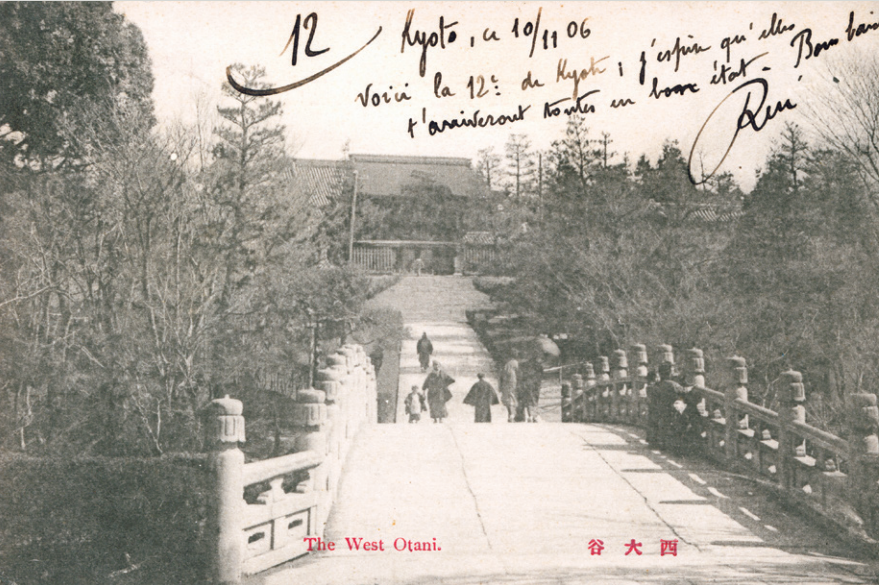 12
Kyoto, ce 10/11 06
Voici la 12e de Kyoto ; j'espère qu'elles
t'arriveront toutes en bon état - Bons baisers
The West Otani.
谷大西